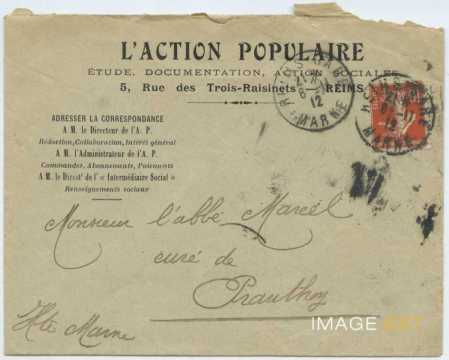 L'ACTION POPULAIRE
ÉTUDE, DOCUMENTATION, ACTION SOCIALES
5, Rue des Trois-Raisinets REIMS
REIMS GARE
12
MARNE
MARNE
ADRESSER LA CORRESPONDANCE
A M. le Directeur de l'A. P.
Rédaction, Collaboration, Intérêt général
A M. l'Administrateur de l'A. P.
Commandes, Abonnements, Paiements
A M. le Directr de l'« Intermédiaire Social »
Renseignements sociaux
Monsieur l'abbé Marcel
curé de
Prauthoy
Hte Marne
IMAGE EST